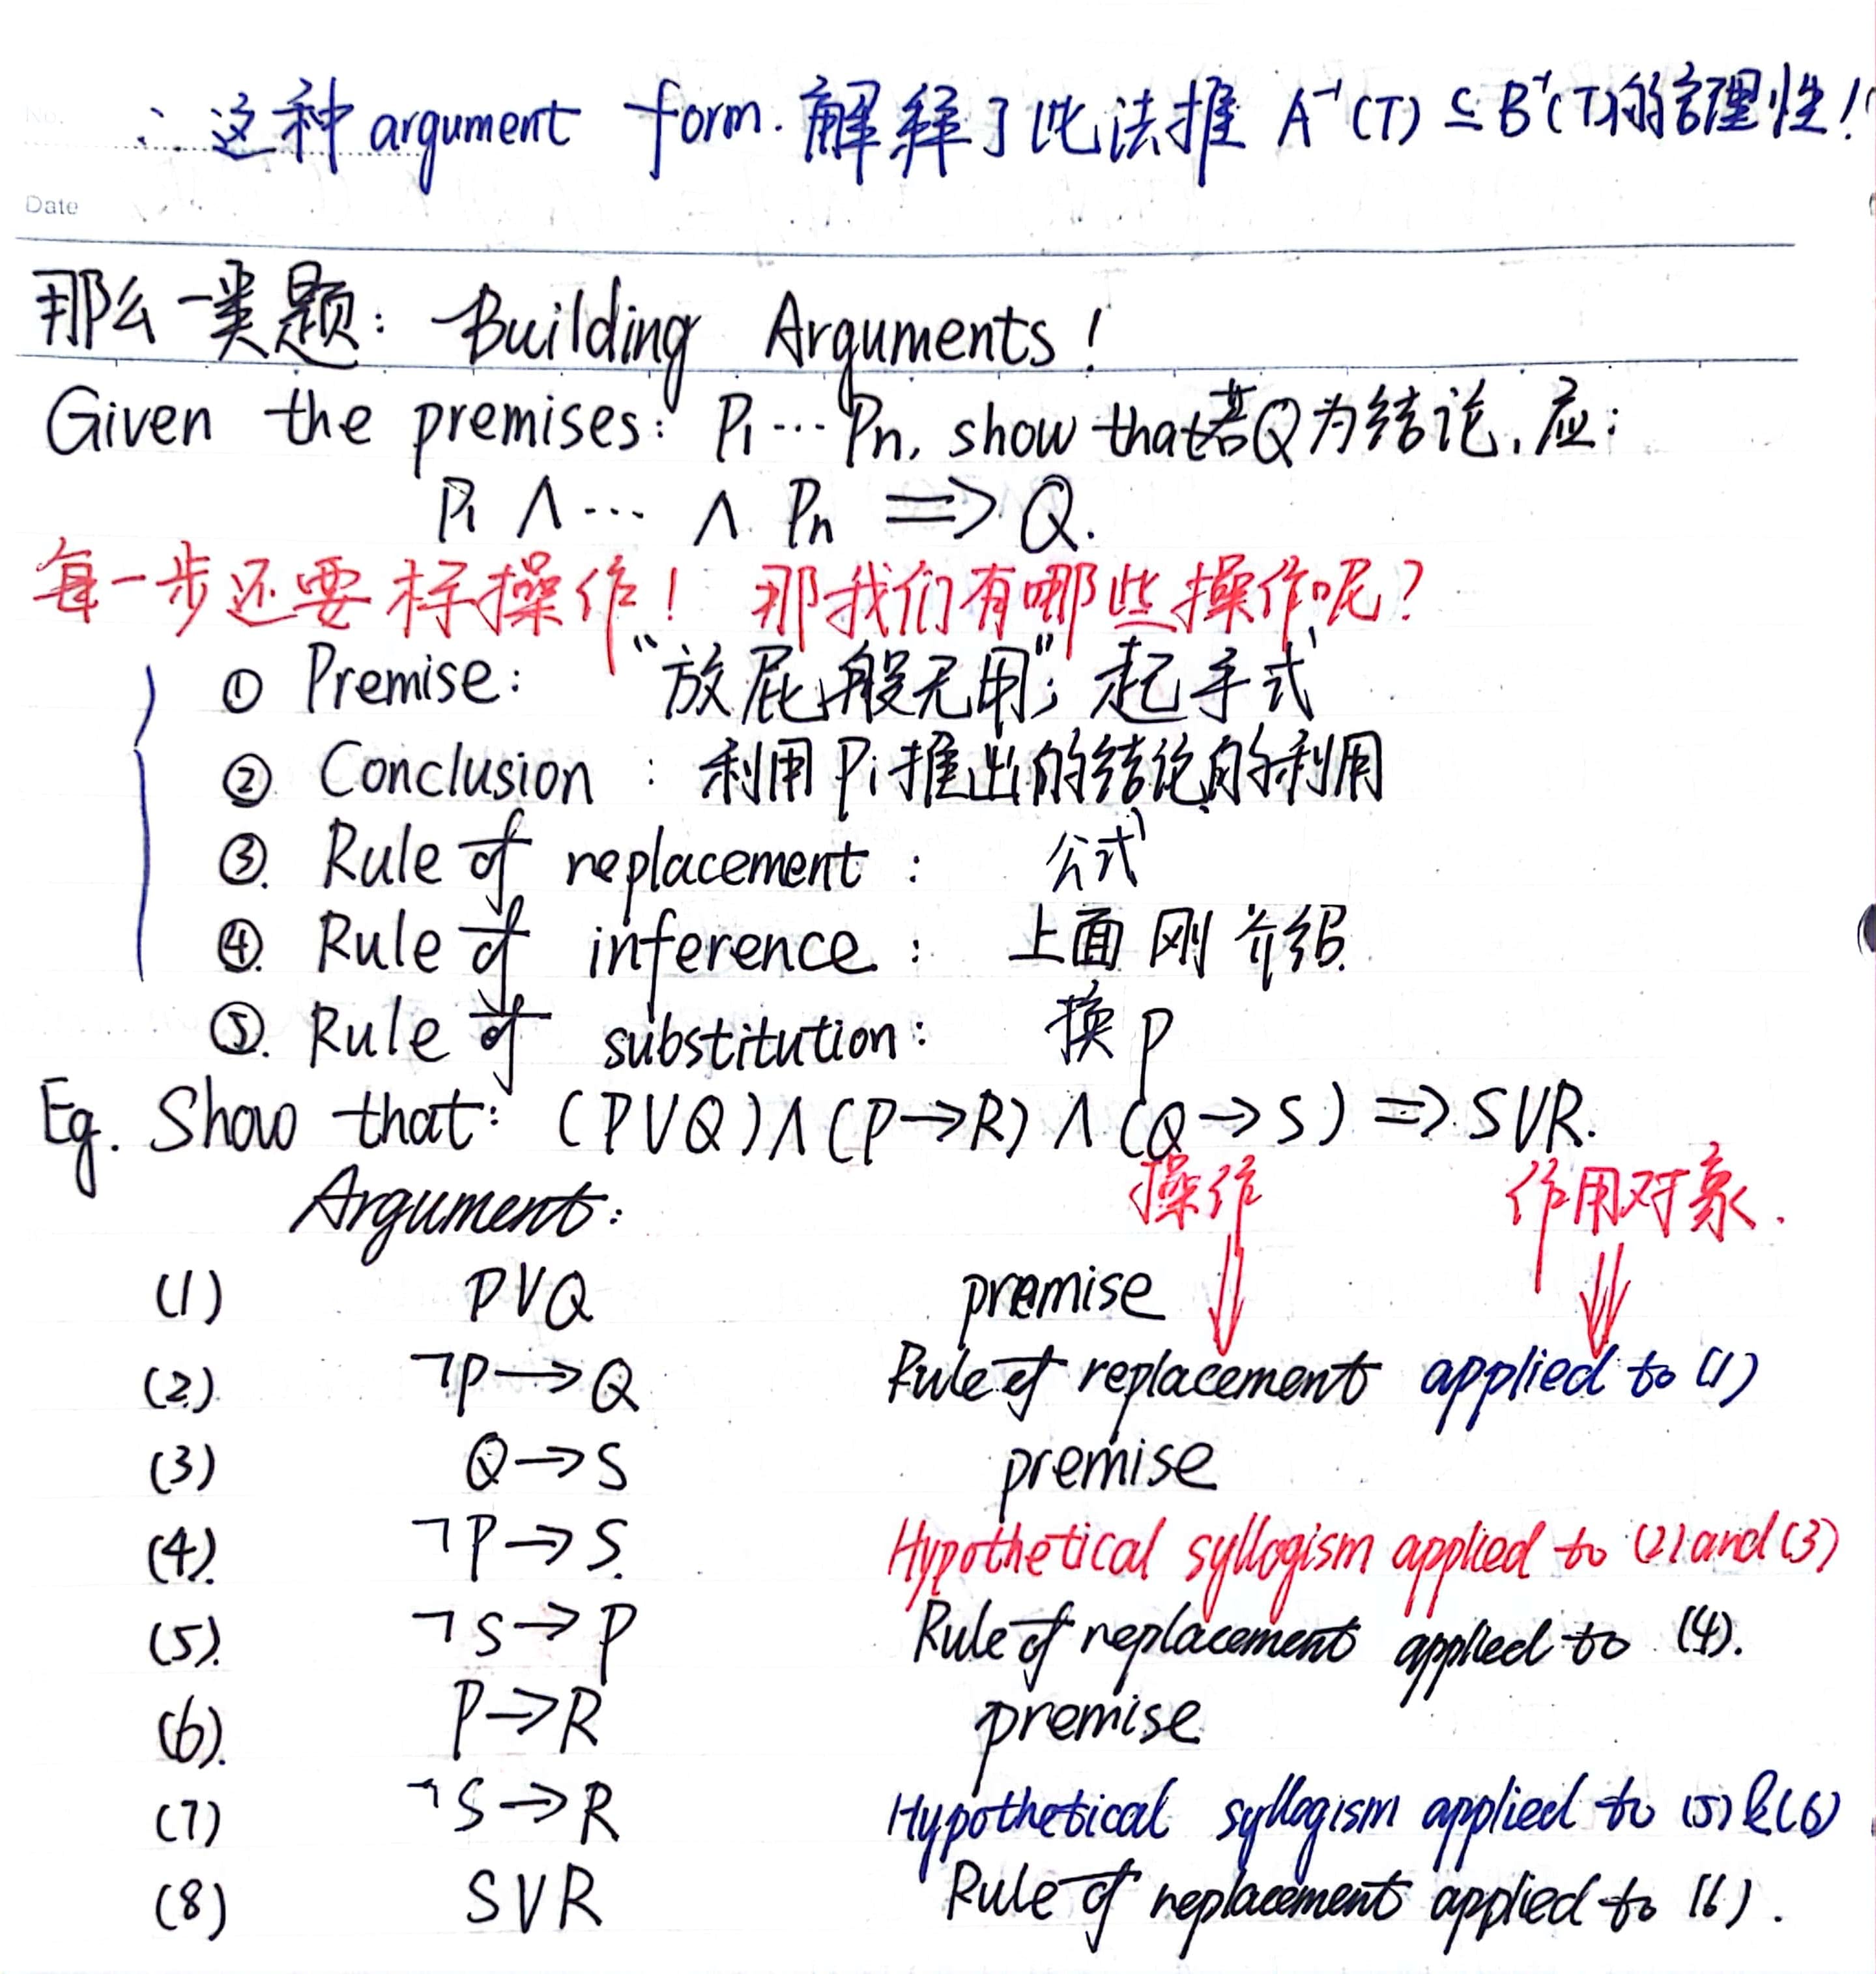 No.
∴ 这种 argument form. 解释了此法推 A⁻¹(T) ⊆ B⁻¹(T)的合理性!
Date
那么一类题: Building Arguments!
Given the premises: P₁ ⋯ Pn, show that若Q为结论,应:
P₁ ∧ ⋯ ∧ Pn ⟹ Q.
每一步还要标操作! 那我们有哪些操作呢?
① Premise: “放屁般无用”; 起手式
② Conclusion : 利用Pi推出的结论的利用
③. Rule of replacement : 公式
④. Rule of inference : 上面刚介绍.
⑤. Rule of substitution: 换P
Eg. Show that: (P∨Q)∧(P→R)∧(Q→S) ⟹ S∨R.
Argument: 操作 作用对象.
(1) P∨Q premise
(2). ¬P→Q Rule of replacement applied to (1)
(3) Q→S premise
(4). ¬P→S. Hypothetical syllogism applied to (2) and (3)
(5). ¬S→P Rule of replacement applied to (4).
(6). P→R premise
(7) ¬S→R Hypothetical syllogism applied to (5) & (6)
(8) S∨R Rule of replacement applied to (6).